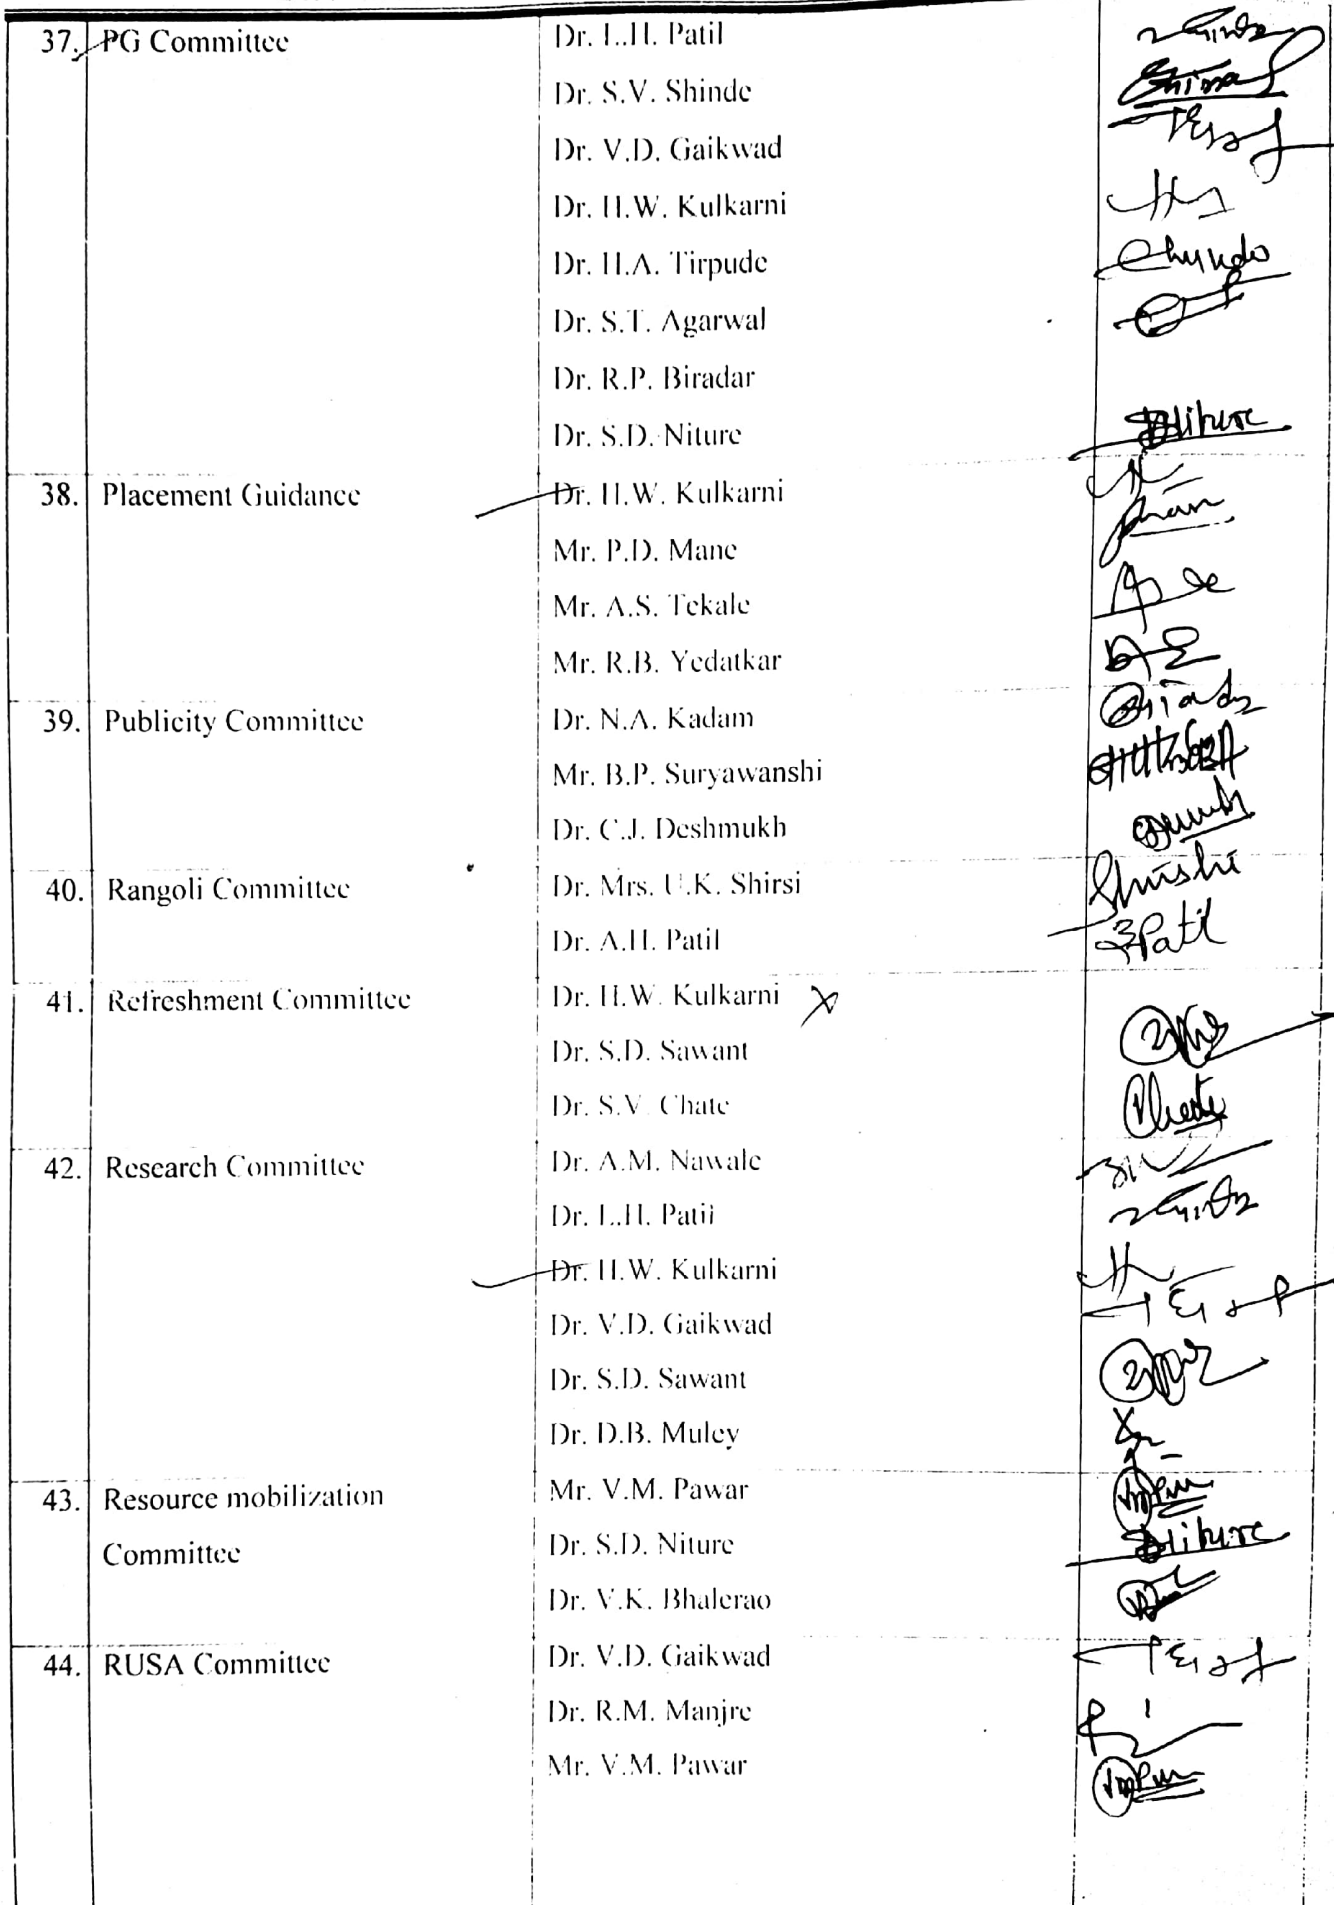 37. PG Committee Dr. L.H. Patil
Dr. S.V. Shinde
Dr. V.D. Gaikwad
Dr. H.W. Kulkarni
Dr. H.A. Tirpude
Dr. S.T. Agarwal
Dr. R.P. Biradar
Dr. S.D. Niture Niture
38. Placement Guidance Dr. H.W. Kulkarni
Mr. P.D. Mane
Mr. A.S. Tekale
Mr. R.B. Yedatkar
39. Publicity Committee Dr. N.A. Kadam
Mr. B.P. Suryawanshi
Dr. C.J. Deshmukh
40. Rangoli Committee Dr. Mrs. U.K. Shirsi
Dr. A.H. Patil Patil
41. Refreshment Committee Dr. H.W. Kulkarni X
Dr. S.D. Sawant
Dr. S.V. Chate
42. Research Committee Dr. A.M. Nawale
Dr. L.H. Patil
Dr. H.W. Kulkarni
Dr. V.D. Gaikwad
Dr. S.D. Sawant
Dr. D.B. Muley
43. Resource mobilization Mr. V.M. Pawar
Dr. S.D. Niture Niture
Committee
Dr. V.K. Bhalerao
44. RUSA Committee Dr. V.D. Gaikwad
Dr. R.M. Manjre
Mr. V.M. Pawar